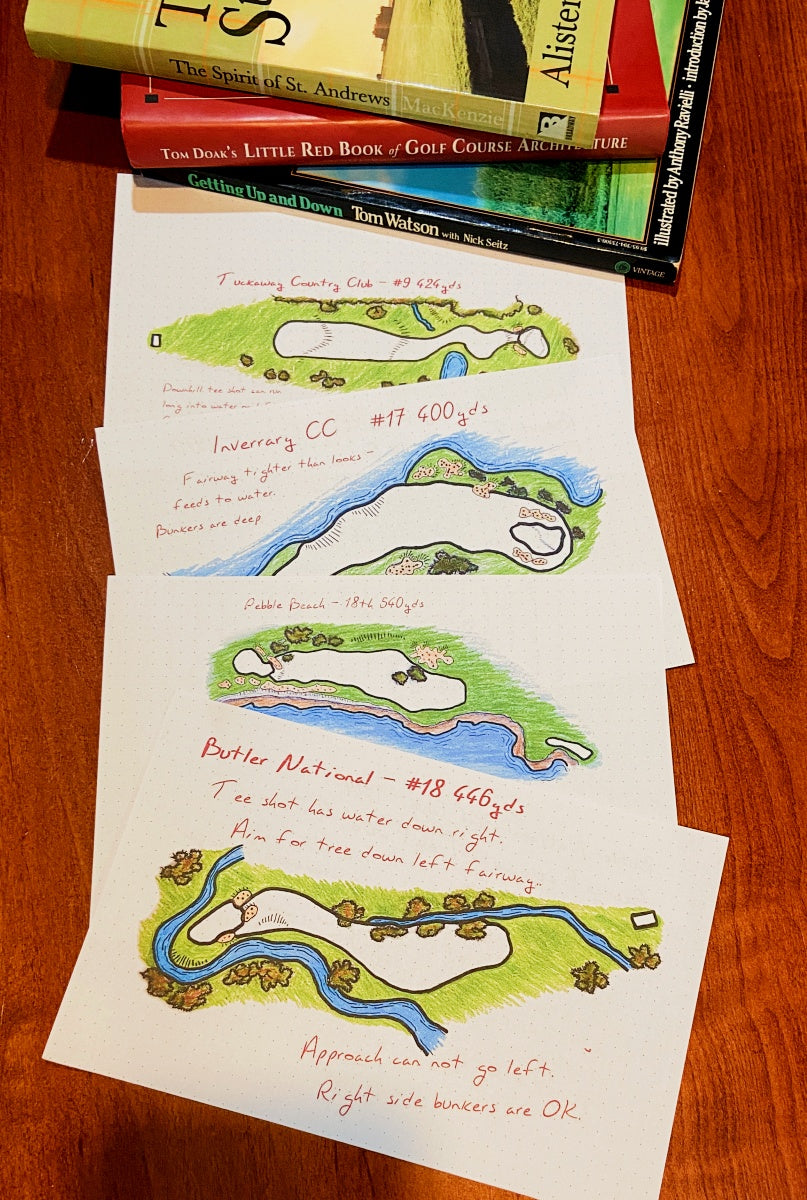 T
St
Alister
The Spirit of St. Andrews MacKenzie
BROADWAY
TOM DOAK'S LITTLE RED BOOK of GOLF COURSE ARCHITECTURE
Getting Up and Down Tom Watson with Nick Seitz
illustrated by Anthony Ravielli • introduction by
VINTAGE
Tuckaway Country Club - #9 424yds
Downhill tee shot can run
long into water
Inverrary CC #17 400yds
Fairway tighter than looks -
feeds to water.
Bunkers are deep
Pebble Beach - 18th 540yds
Butler National - #18 446yds
Tee shot has water down right.
Aim for tree down left fairway..
Approach can not go left.
Right side bunkers are OK.